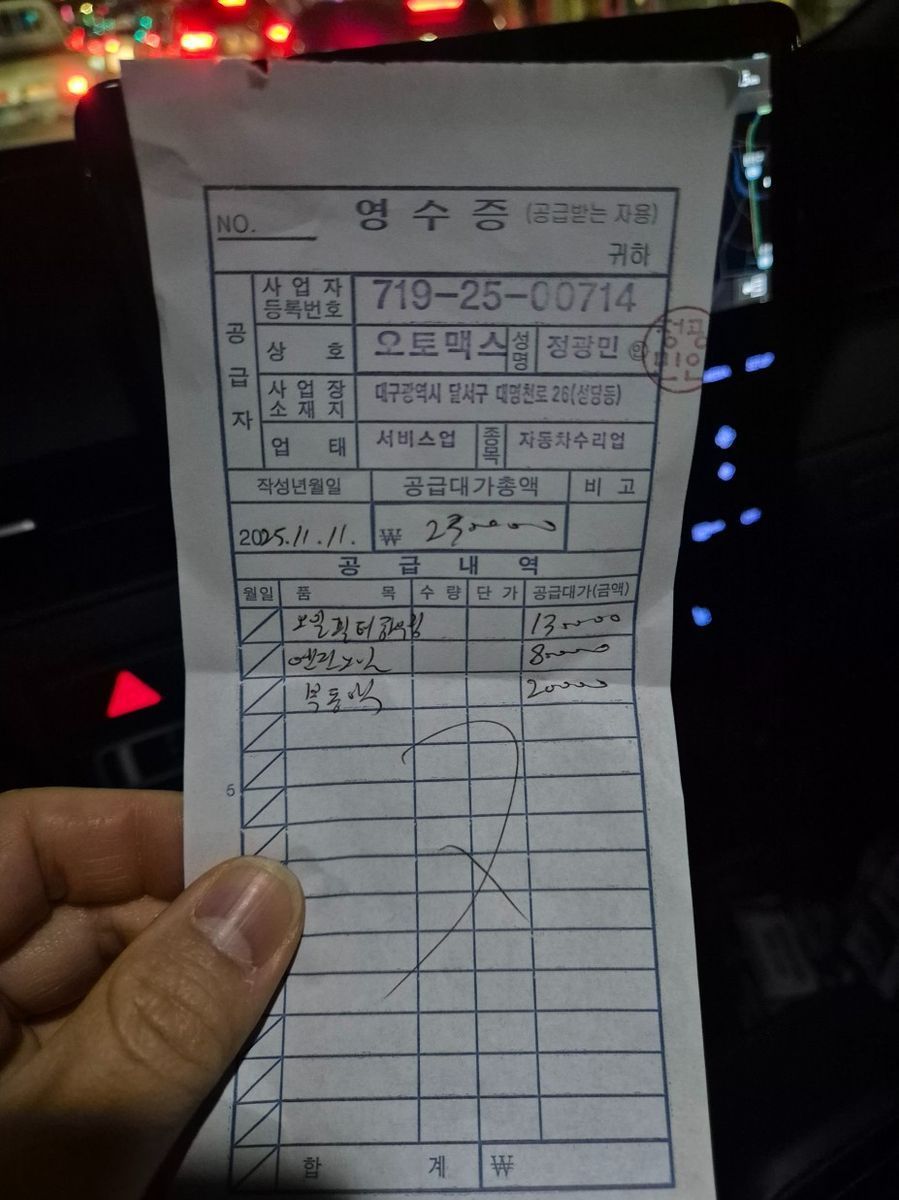 영 수 증 (공급받는 자용)
NO.
귀하
공급자
사업자등록번호 719-25-00714
상 호 오토맥스 성명 정광민 ㊞
정광민인
사업장소재지 대구광역시 달서구 대명천로 26(성당동)
업 태 서비스업 종목 자동차수리업
작성년월일 공급대가총액 비 고
2025.11.11. ₩ 230000
공 급 내 역
월일 품 목 수 량 단 가 공급대가(금액)
오일필터하우징 130000
엔진오일 80000
부동액 20000
5
합 계 ₩